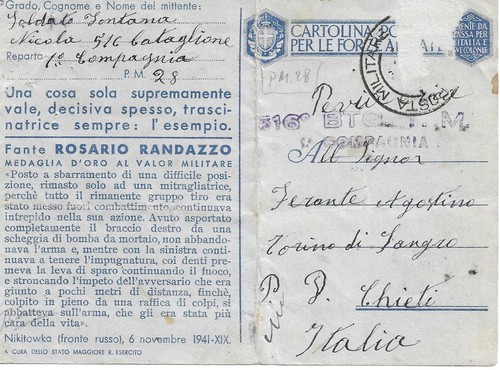 Grado, Cognome e Nome del mittente:
Soldato Fontana
Nicola 516 Bataglione
Reparto 1º Compagnia
P.M. 28
Una cosa sola supremamente
vale, decisiva spesso, trasci-
natrice sempre: l'esempio.
Fante ROSARIO RANDAZZO
MEDAGLIA D'ORO AL VALOR MILITARE
«Posto a sbarramento di una difficile posi-
zione, rimasto solo ad una mitragliatrice,
perchè tutto il rimanente gruppo tiro era
stato messo fuori combattimento, continuava
intrepido nella sua azione. Avuto asportato
completamente il braccio destro da una
scheggia di bomba da mortaio, non abbando-
nava l'arma e, mentre con la sinistra conti-
nuava a tenere l'impugnatura, coi denti pre-
meva la leva di sparo continuando il fuoco,
e stroncando l'impeto dell'avversario che era
giunto a pochi metri di distanza, finchè,
colpito in pieno da una raffica di colpi, si
abbatteva sull'arma, che gli era stata più
cara della vita».
Nikitowka (fronte russo), 6 novembre 1941-XIX.
A CURA DELLO STATO MAGGIORE R. ESERCITO
CARTOLINA
PER LE FORZE
POSTA MILITARE
P.M. 28
516º BTG. M.
1ª COMPAGNIA
All Signor
Ferante Agostino
Torino di Sangro
P P. Chieti
Italia